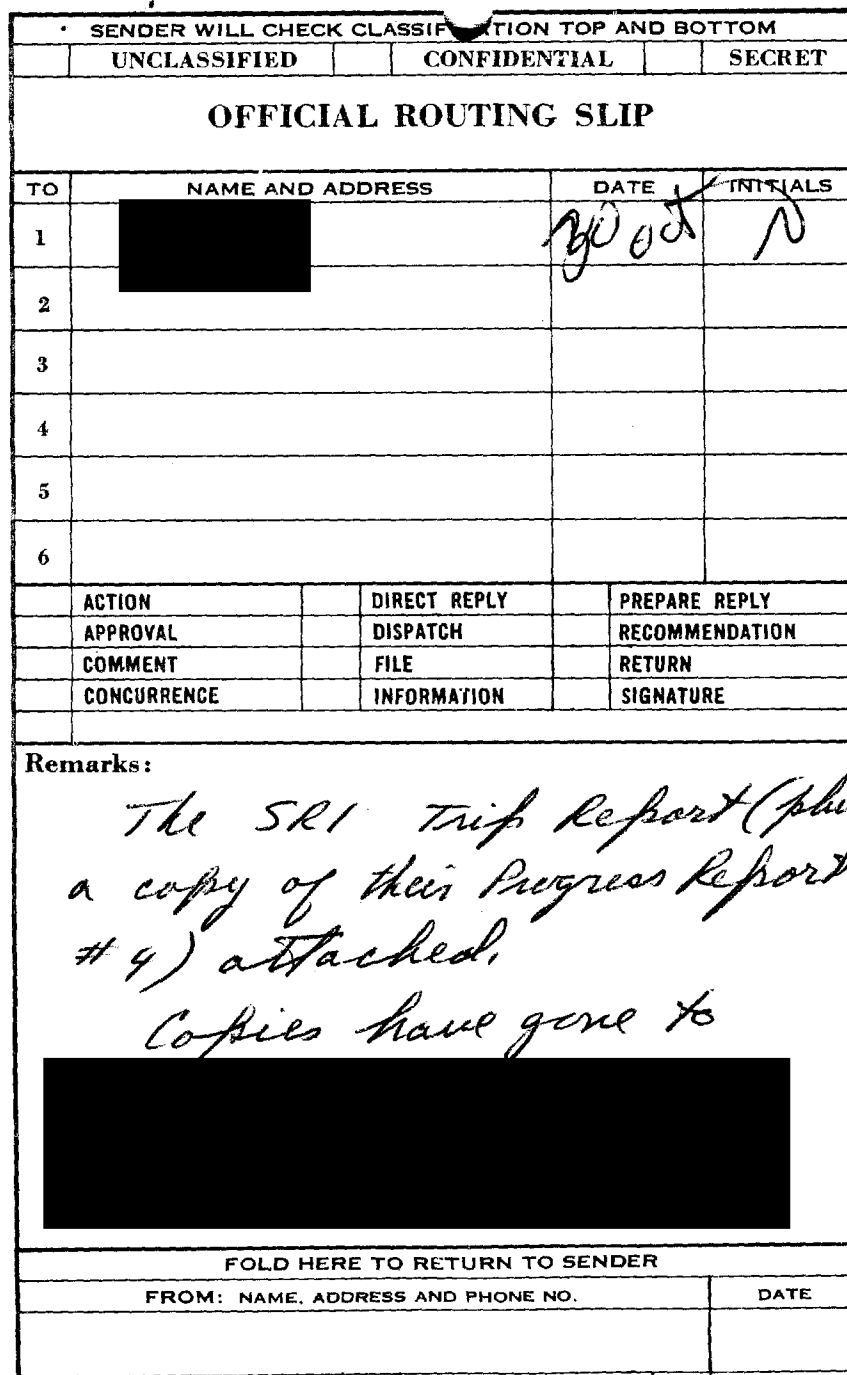 SENDER WILL CHECK CLASSIF TION TOP AND BOTTOM
UNCLASSIFIED CONFIDENTIAL SECRET
OFFICIAL ROUTING SLIP
TO NAME AND ADDRESS DATE INITIALS
1 oct
2
3
4
5
6
ACTION DIRECT REPLY PREPARE REPLY
APPROVAL DISPATCH RECOMMENDATION
COMMENT FILE RETURN
CONCURRENCE INFORMATION SIGNATURE
Remarks:
The SRI Trip Report (plu
a copy of their Progress Report
# 4) attached.
Copies have gone to
FOLD HERE TO RETURN TO SENDER
FROM: NAME, ADDRESS AND PHONE NO. DATE